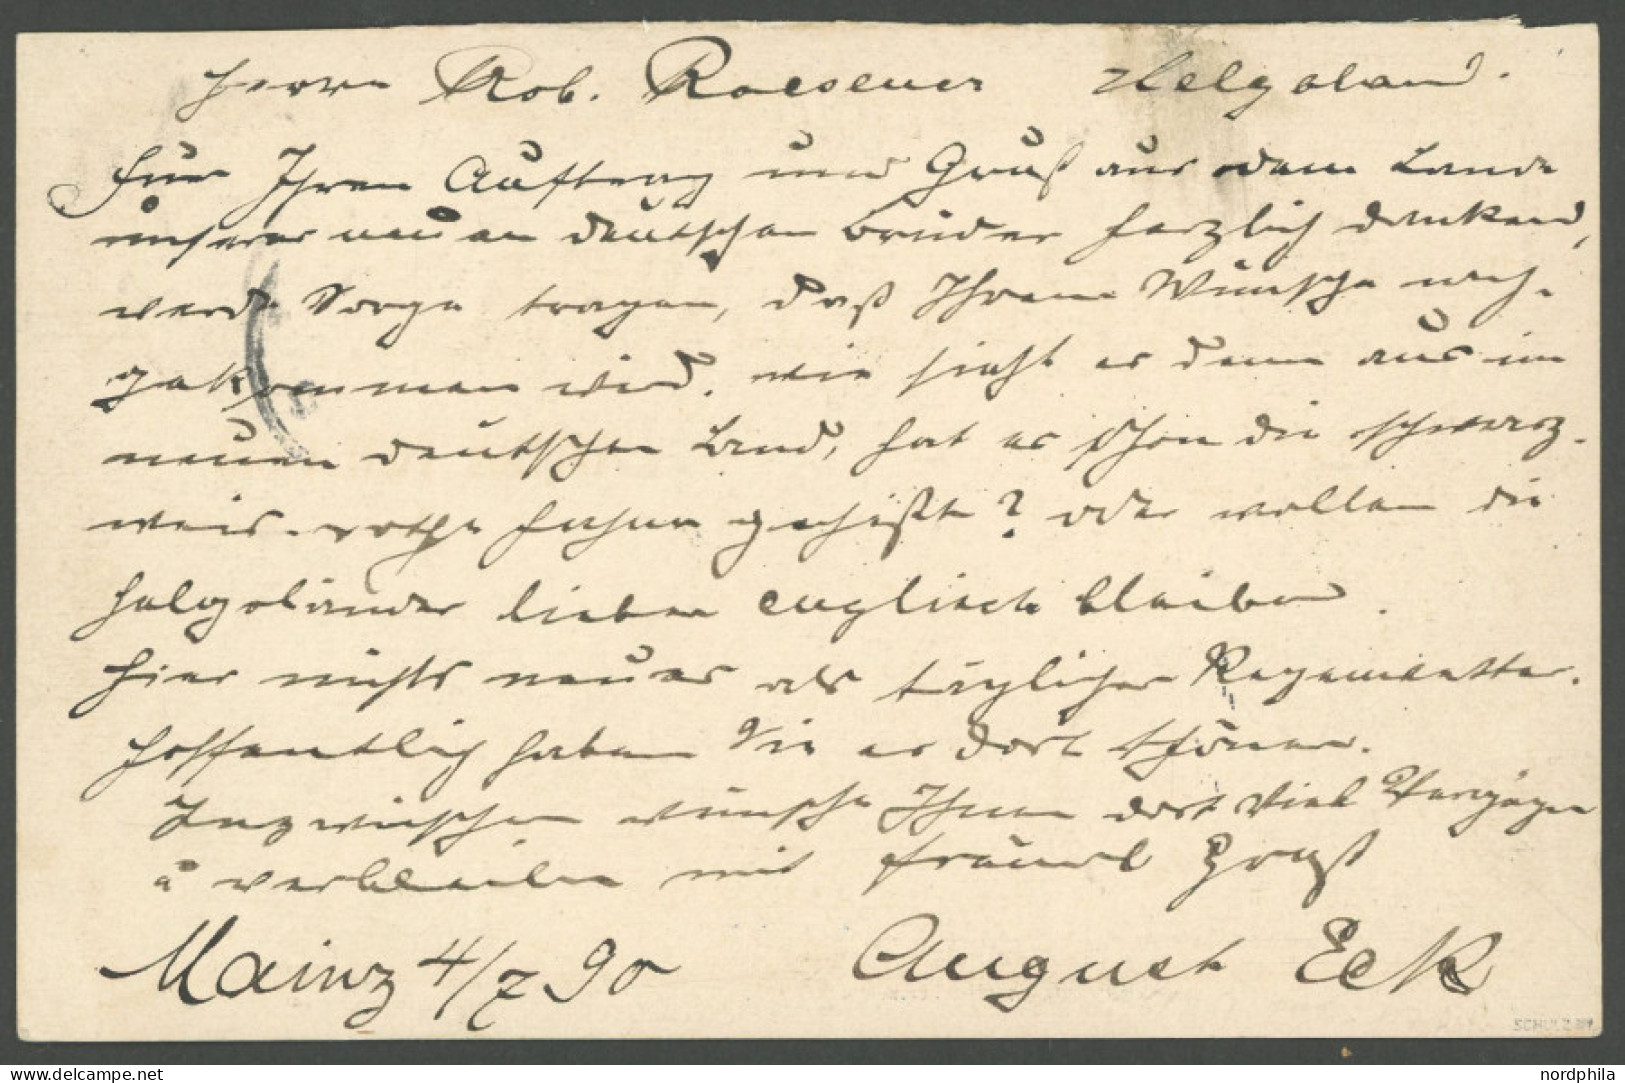 Herrn Rob. Roesener Helgoland.
Für Ihren Auftrag und Gruß aus dem Lande
unserer neuen deutschen Brüder herzlich dankend,
werde Sorge tragen, daß Ihrem Wunsche nach-
gekommen wird. Wie sieht es denn aus im
neuen deutschen Land, hat es schon die schwarz-
weis-rothe Fahne gehißt? oder wollen die
Helgoländer lieber englisch bleiben.
Hier nichts neues als täglicher Regenwetter.
Hoffentlich haben Sie es dort schöner.
Inzwischen wünsche Ihnen dort viel Vergnügen
u verbleibe mit freundl Gruß
Mainz 4/7 90 August Eck
SCHULZ
nordphila
www.delcampe.net